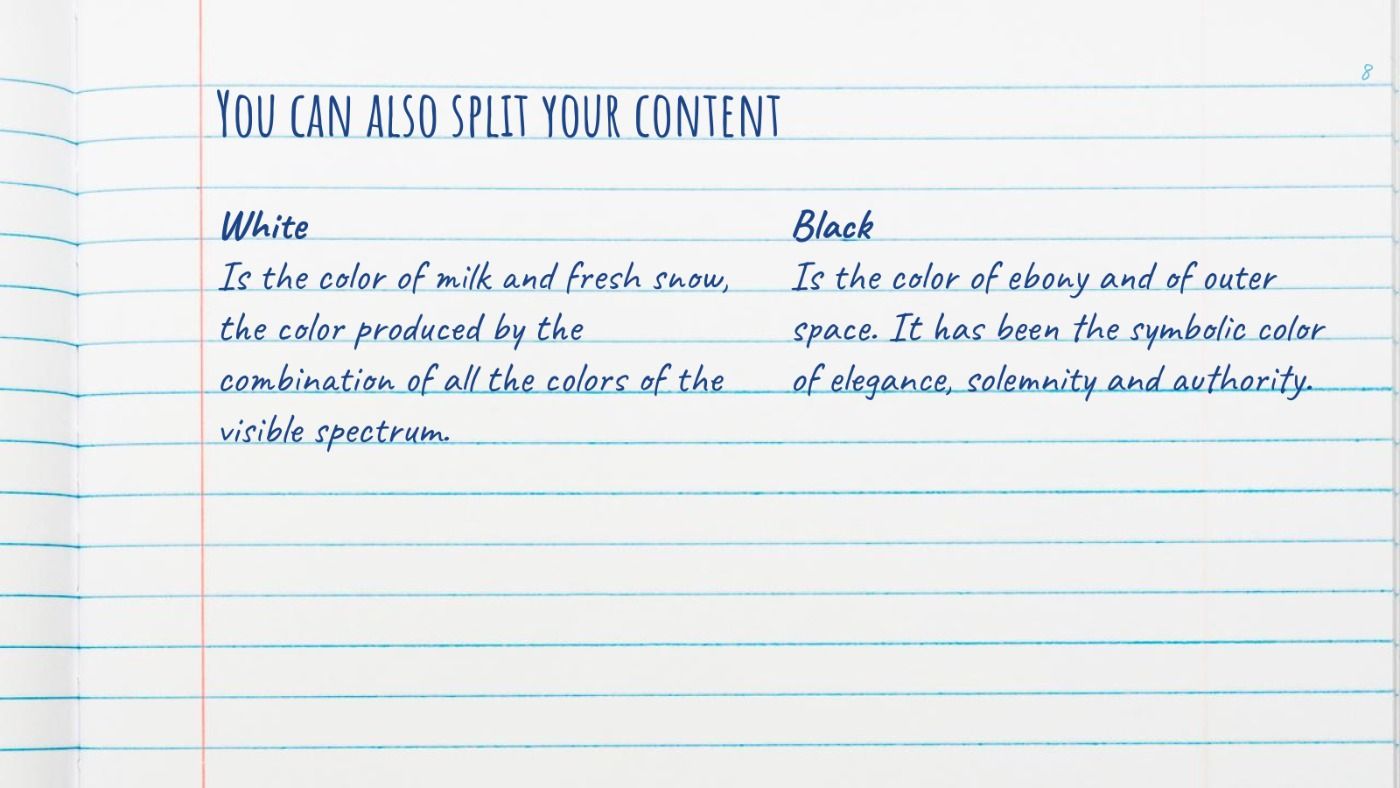 8
You can also split your content
White
Is the color of milk and fresh snow,
the color produced by the
combination of all the colors of the
visible spectrum.
Black
Is the color of ebony and of outer
space. It has been the symbolic color
of elegance, solemnity and authority.